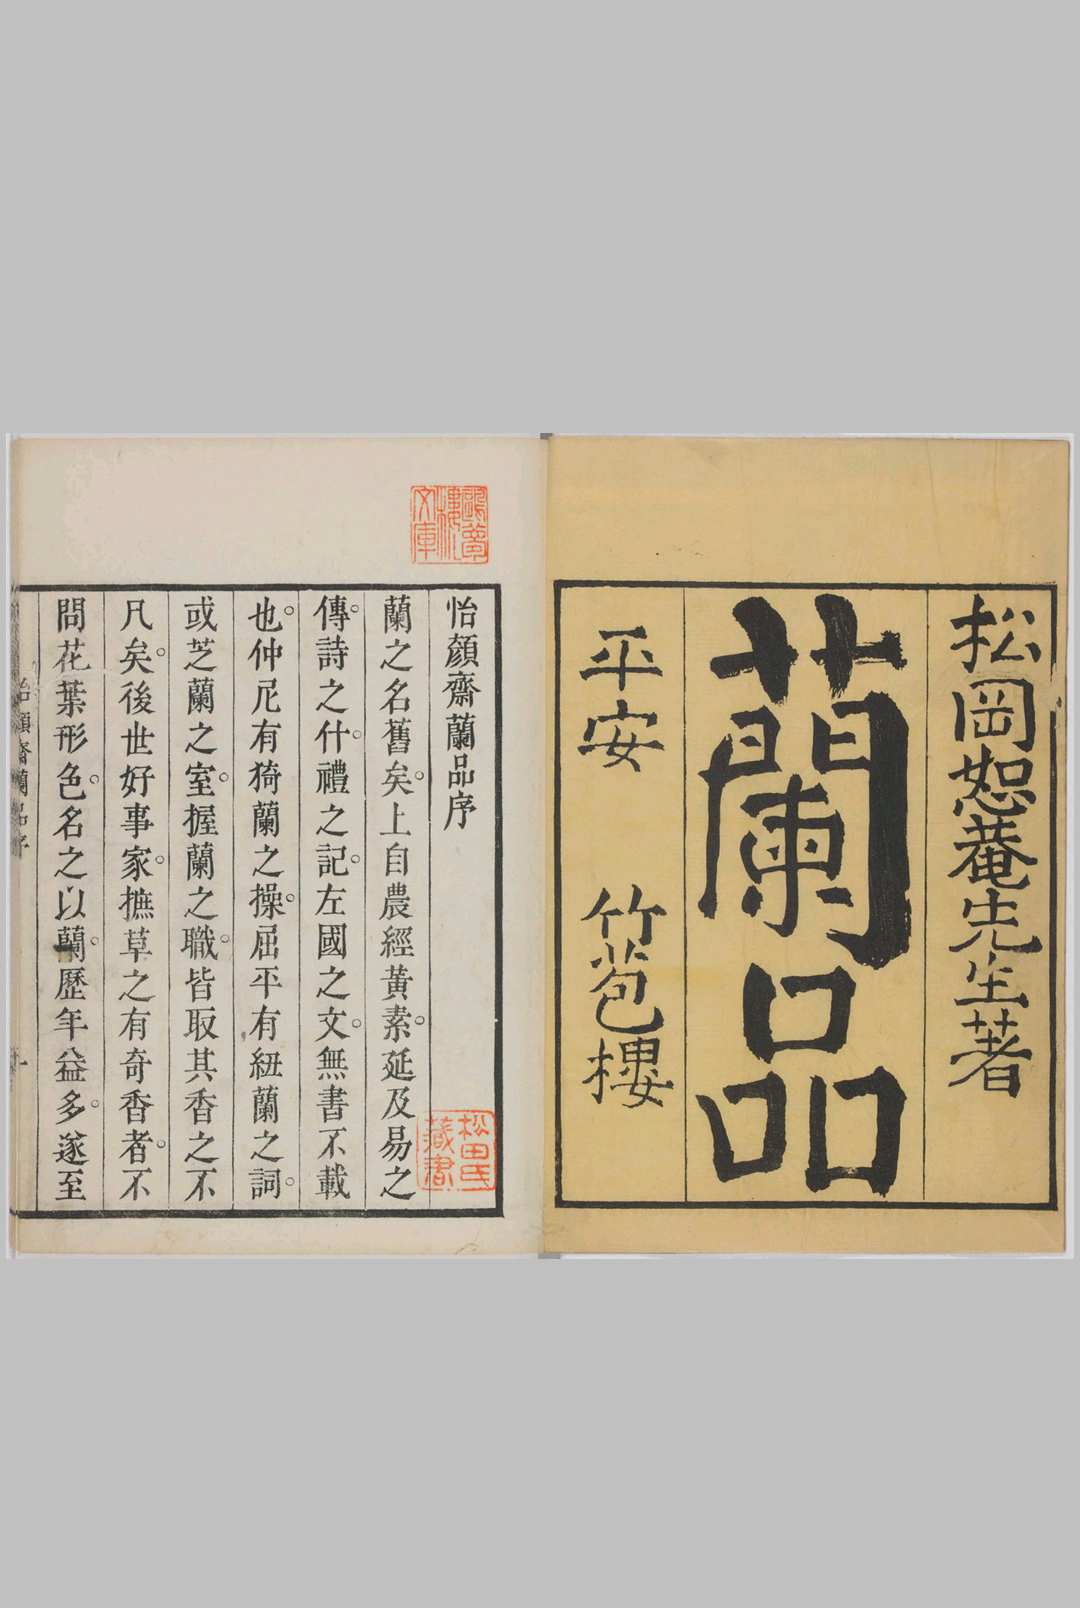 松岡恕菴先生著
蘭品
平安 竹苞樓
怡顏齋蘭品序
蘭之名舊矣。上自農經黃素。延及易之
傳。詩之什。禮之記。左國之文。無書不載
也。仲尼有猗蘭之操。屈平有紐蘭之詞。
或芝蘭之室。握蘭之職。皆取其香之不
凡矣。後世好事家。摭草之有奇香者。不
問花葉形色。名之以蘭。歷年益多。遂至
怡顏齋蘭品序
一
鷗夢
樓
文庫
松田氏
藏書